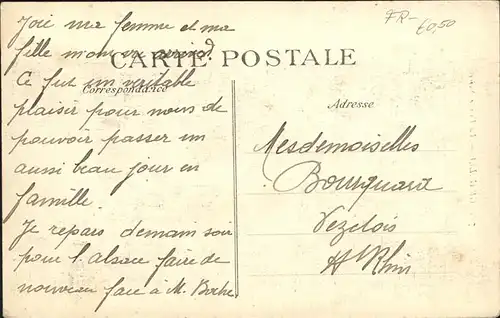 Joie ma femme et ma
fille m'ont vu arriver
CARTE POSTALE
Correspondance
Ce fut un veritable
plaisir pour nous de
pouvoir passer un
aussi beau jour en
famille.
Je repars demain soir
pour l'alsace faire de
nouveau face à M. Boche
FR-
60,50
Adresse
Mesdemoiselles
Bourquard
Vezelois
Ht Rhin